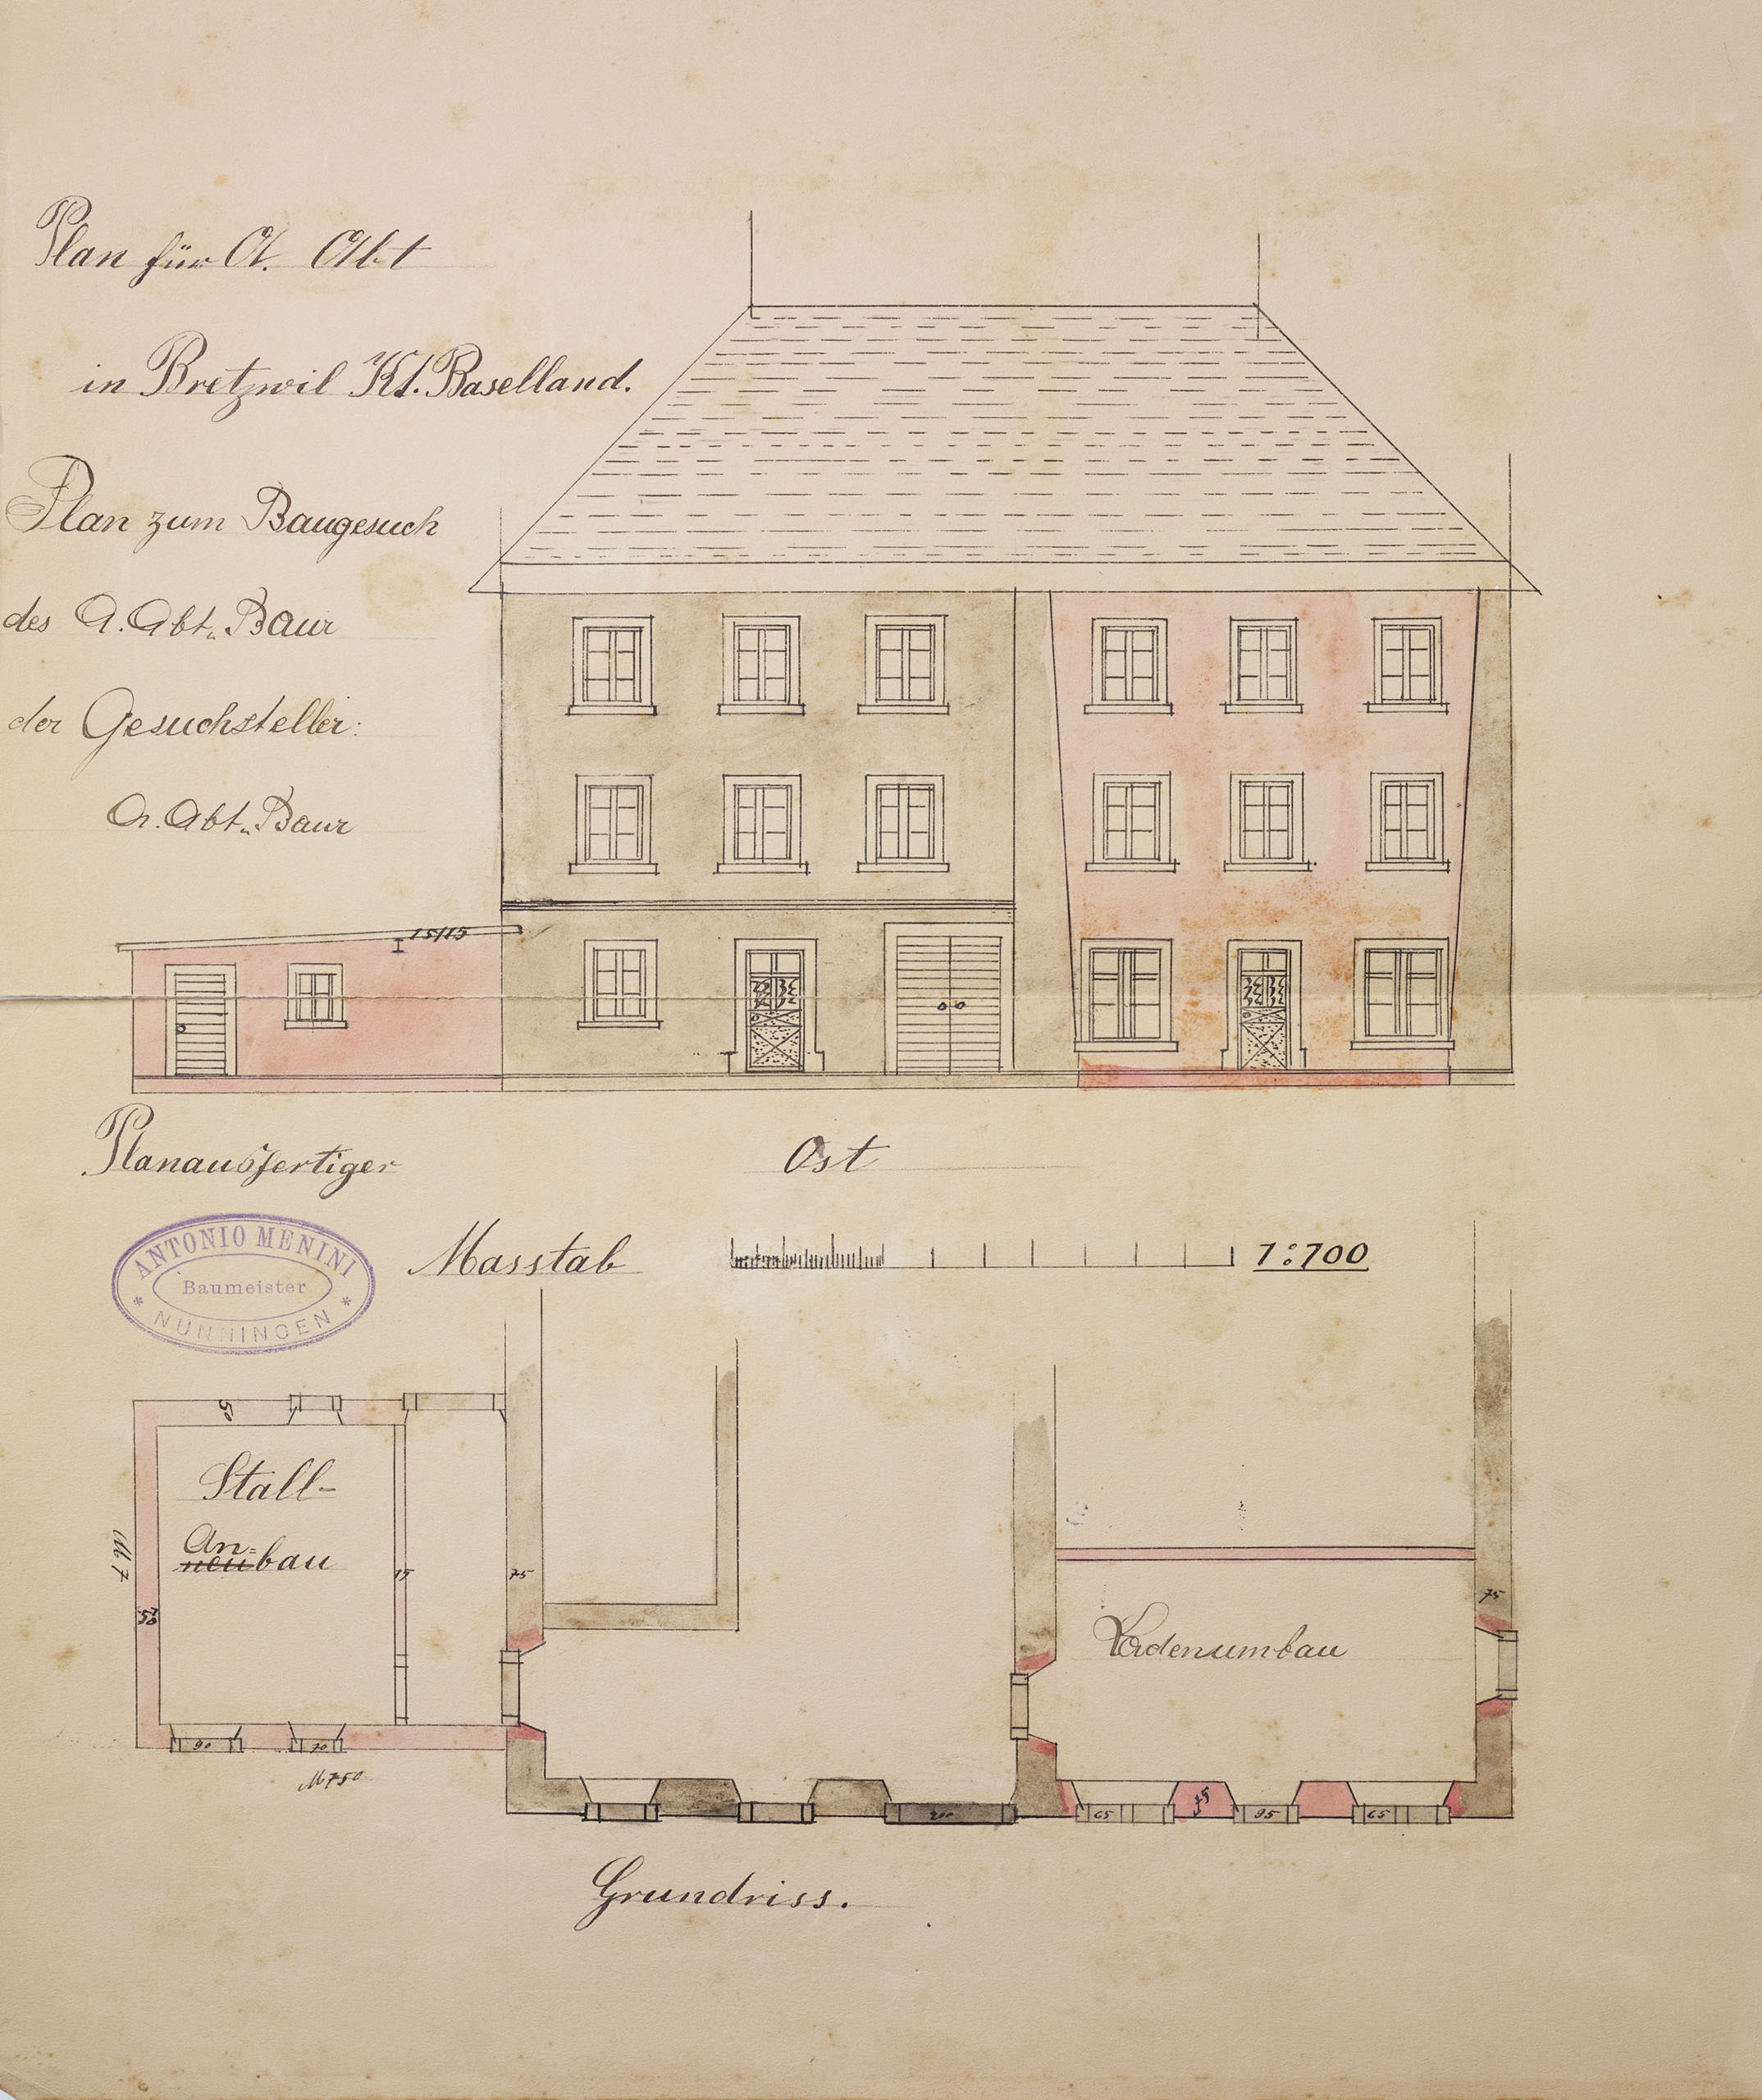 Plan für A. Abt
in Bretzwil Kt. Baselland.
Plan zum Baugesuch
des A. Abt-Baur
der Gesuchsteller:
A. Abt-Baur
15/15
Planausfertiger
Ost
ANTONIO MENINI
Baumeister
* NUNNINGEN *
Masstab
1:100
50
Stall-
An=
neubau
M 7
50
15
75
75
Ladenumbau
90
70
M 7 50
200
65
75
95
65
Grundriss.